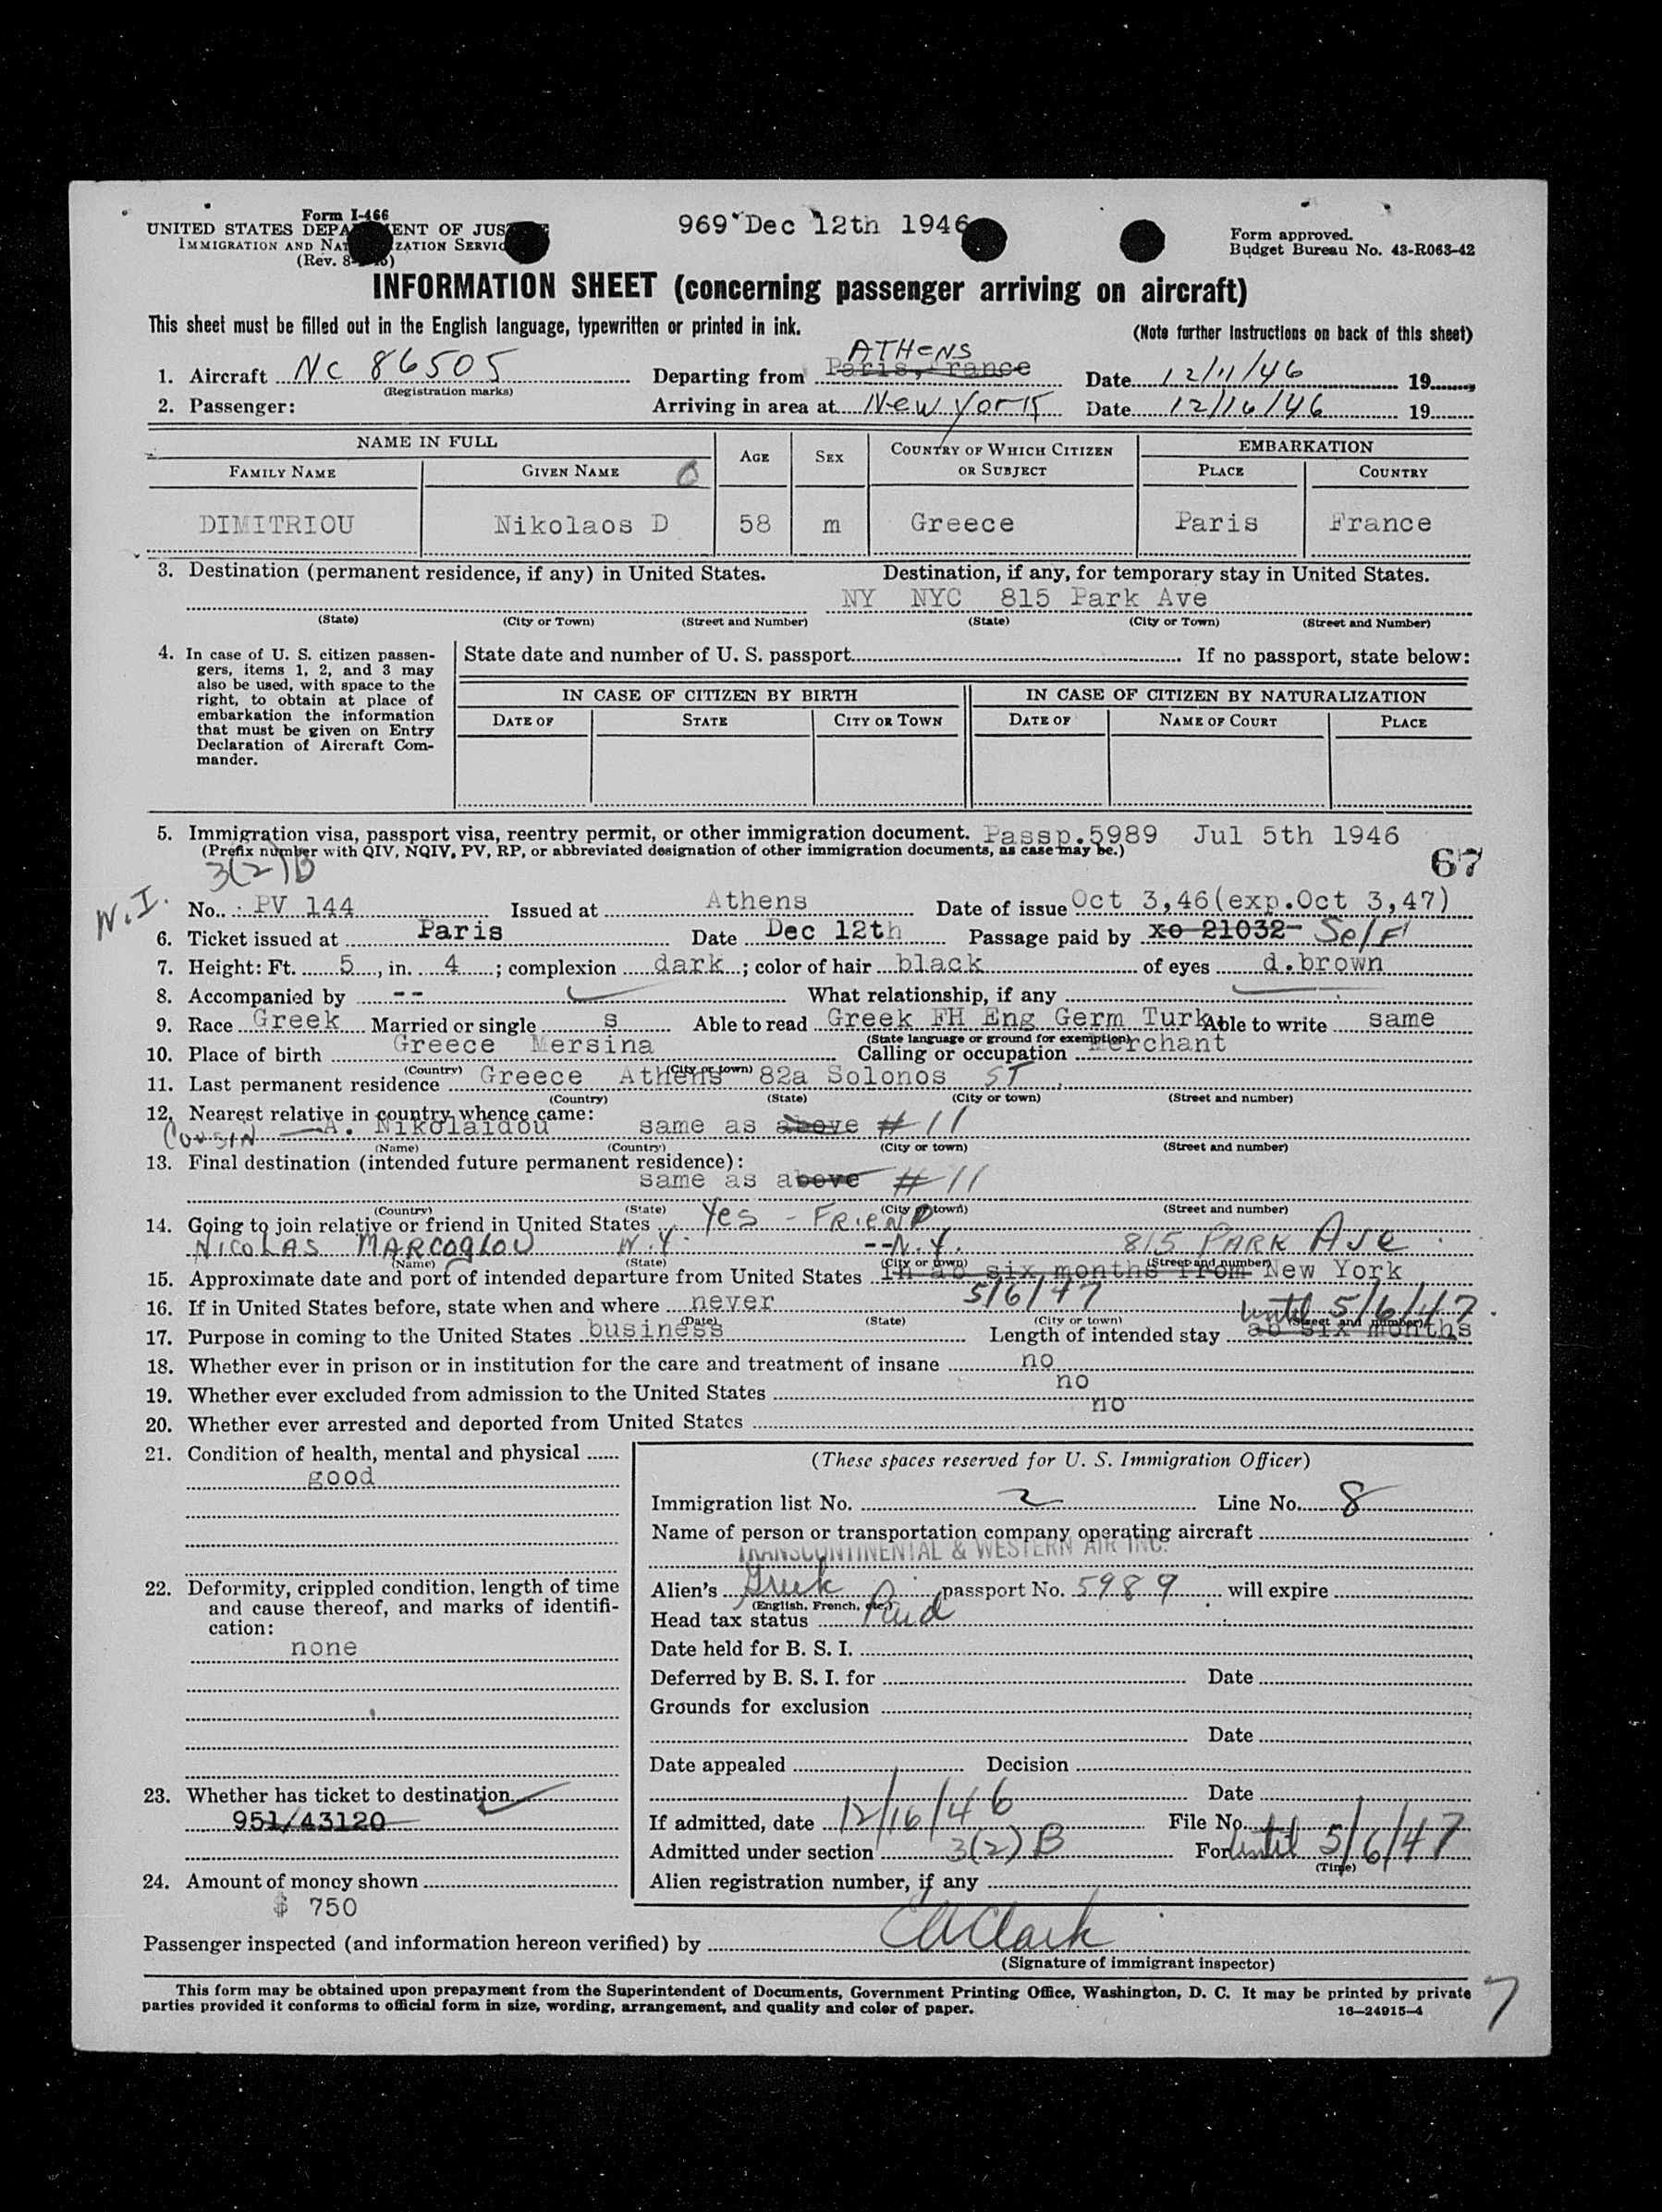 Form I-466
UNITED STATES DEPA ENT OF JUS
IMMIGRATION AND NAT IZATION SERVIC
(Rev. 8- )
969 Dec 12th 1946
Form approved.
Budget Bureau No. 43-R063-42
INFORMATION SHEET (concerning passenger arriving on aircraft)
This sheet must be filled out in the English language, typewritten or printed in ink.
(Note further instructions on back of this sheet)
ATHENS
1. Aircraft NC 86505 Departing from Paris, France Date 12/11/46 19
(Registration marks)
2. Passenger: Arriving in area at New York Date 12/16/46 19
NAME IN FULL AGE SEX COUNTRY OF WHICH CITIZEN OR SUBJECT EMBARKATION
FAMILY NAME GIVEN NAME PLACE COUNTRY
DIMITRIOU Nikolaos D 58 m Greece Paris France
3. Destination (permanent residence, if any) in United States. Destination, if any, for temporary stay in United States.
NY NYC 815 Park Ave
(State) (City or Town) (Street and Number) (State) (City or Town) (Street and Number)
4. In case of U. S. citizen passen-
gers, items 1, 2, and 3 may
also be used, with space to the
right, to obtain at place of
embarkation the information
that must be given on Entry
Declaration of Aircraft Com-
mander.
State date and number of U. S. passport If no passport, state below:
IN CASE OF CITIZEN BY BIRTH IN CASE OF CITIZEN BY NATURALIZATION
DATE OF STATE CITY OR TOWN DATE OF NAME OF COURT PLACE
5. Immigration visa, passport visa, reentry permit, or other immigration document. Passp.5989 Jul 5th 1946
(Prefix number with QIV, NQIV, PV, RP, or abbreviated designation of other immigration documents, as case may be.)
67
3(2)B
W.I.
No. PV 144 Issued at Athens Date of issue Oct 3,46(exp.Oct 3,47)
6. Ticket issued at Paris Date Dec 12th Passage paid by xo 21032- Self
7. Height: Ft. 5, in. 4; complexion dark; color of hair black of eyes d.brown
8. Accompanied by -- What relationship, if any
9. Race Greek Married or single s Able to read Greek FH Eng Germ Turk Able to write same
(State language or ground for exemption)
10. Place of birth Greece Mersina Calling or occupation Merchant
(Country) (City or town)
11. Last permanent residence Greece Athens 82a Solonos ST.
(Country) (State) (City or town) (Street and number)
12. Nearest relative in country whence came:
COUSIN — A. Nikolaidou same as above # 11
(Name) (Country) (City or town) (Street and number)
13. Final destination (intended future permanent residence):
same as above # 11
(Country) (State) (City or town) (Street and number)
14. Going to join relative or friend in United States Yes - FRIEND
NICOLAS MARCOGLOU N.Y. --N.Y. 815 PARK AVE
(Name) (State) (City or town) (Street and number)
15. Approximate date and port of intended departure from United States in ab six months from New York
5/6/47
16. If in United States before, state when and where never
until 5/6/47.
(Date) (State) (City or town) (Street and number)
17. Purpose in coming to the United States business Length of intended stay ab six months
18. Whether ever in prison or in institution for the care and treatment of insane no
19. Whether ever excluded from admission to the United States no
20. Whether ever arrested and deported from United States no
21. Condition of health, mental and physical
good
22. Deformity, crippled condition, length of time
and cause thereof, and marks of identifi-
cation:
none
23. Whether has ticket to destination
951/43120
24. Amount of money shown
$ 750
(These spaces reserved for U. S. Immigration Officer)
Immigration list No. 2 Line No. 8
Name of person or transportation company operating aircraft
TRANSCONTINENTAL & WESTERN AIR INC.
Alien's Greek passport No. 5989 will expire
(English, French, etc.)
Head tax status Paid
Date held for B. S. I.
Deferred by B. S. I. for Date
Grounds for exclusion
Date
Date appealed Decision
Date
If admitted, date 12/16/46 File No.
Admitted under section 3(2)B For until 5/6/47
(Time)
Alien registration number, if any
Passenger inspected (and information hereon verified) by CAClark
(Signature of immigrant inspector)
This form may be obtained upon prepayment from the Superintendent of Documents, Government Printing Office, Washington, D. C. It may be printed by private
parties provided it conforms to official form in size, wording, arrangement, and quality and color of paper. 16—24915-4
7